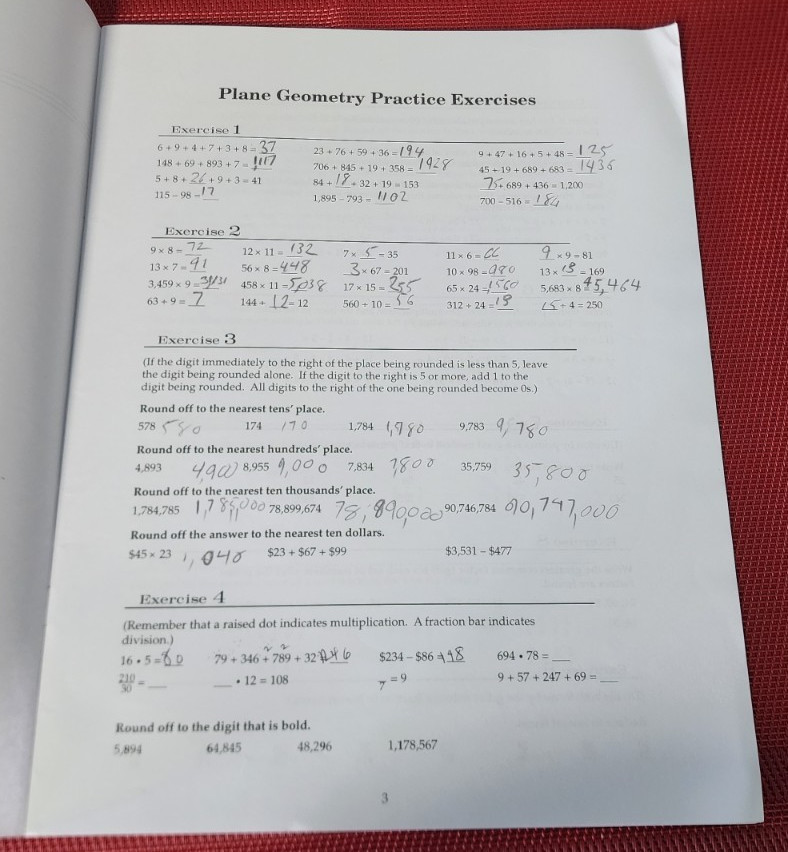 Plane Geometry Practice Exercises
Exercise 1
6 + 9 + 4 + 7 + 3 + 8 = 37 23 + 76 + 59 + 36 = 194 9 + 47 + 16 + 5 + 48 = 125
148 + 69 + 893 + 7 = 1117 706 + 845 + 19 + 358 = 1928 45 + 19 + 689 + 683 = 1436
5 + 8 + 26 + 9 + 3 = 41 84 + 18 + 32 + 19 = 153 75 + 689 + 436 = 1,200
115 - 98 = 17 1,895 - 793 = 1102 700 - 516 = 184
Exercise 2
9 × 8 = 72 12 × 11 = 132 7 × 5 = 35 11 × 6 = 66 9 × 9 = 81
13 × 7 = 91 56 × 8 = 448 3 × 67 = 201 10 × 98 = 980 13 × 13 = 169
3,459 × 9 = 458 × 11 = 5,038 17 × 15 = 255 65 × 24 = 1560 5,683 × 8 = 45,464
63 ÷ 9 = 7 144 ÷ 12 = 12 560 ÷ 10 = 56 312 ÷ 24 = ÷ 4 = 250
Exercise 3
(If the digit immediately to the right of the place being rounded is less than 5, leave
the digit being rounded alone. If the digit to the right is 5 or more, add 1 to the
digit being rounded. All digits to the right of the one being rounded become 0s.)
Round off to the nearest tens' place.
578 580 174 170 1,784 1,780 9,783 9,780
Round off to the nearest hundreds' place.
4,893 4,900 8,955 9,000 7,834 7,800 35,759 35,800
Round off to the nearest ten thousands' place.
1,784,785 1,785,000 78,899,674 78,890,000 90,746,784 90,747,000
Round off the answer to the nearest ten dollars.
$45 × 23 1,040 $23 + $67 + $99 $3,531 - $477
Exercise 4
(Remember that a raised dot indicates multiplication. A fraction bar indicates
division.)
16 • 5 = 80 79 + 346 + 789 + 32 = $234 - $86 = 148 694 • 78 = __
210/30 = __ __ • 12 = 108 /7 = 9 9 + 57 + 247 + 69 = __
Round off to the digit that is bold.
5,894 64,845 48,296 1,178,567
3